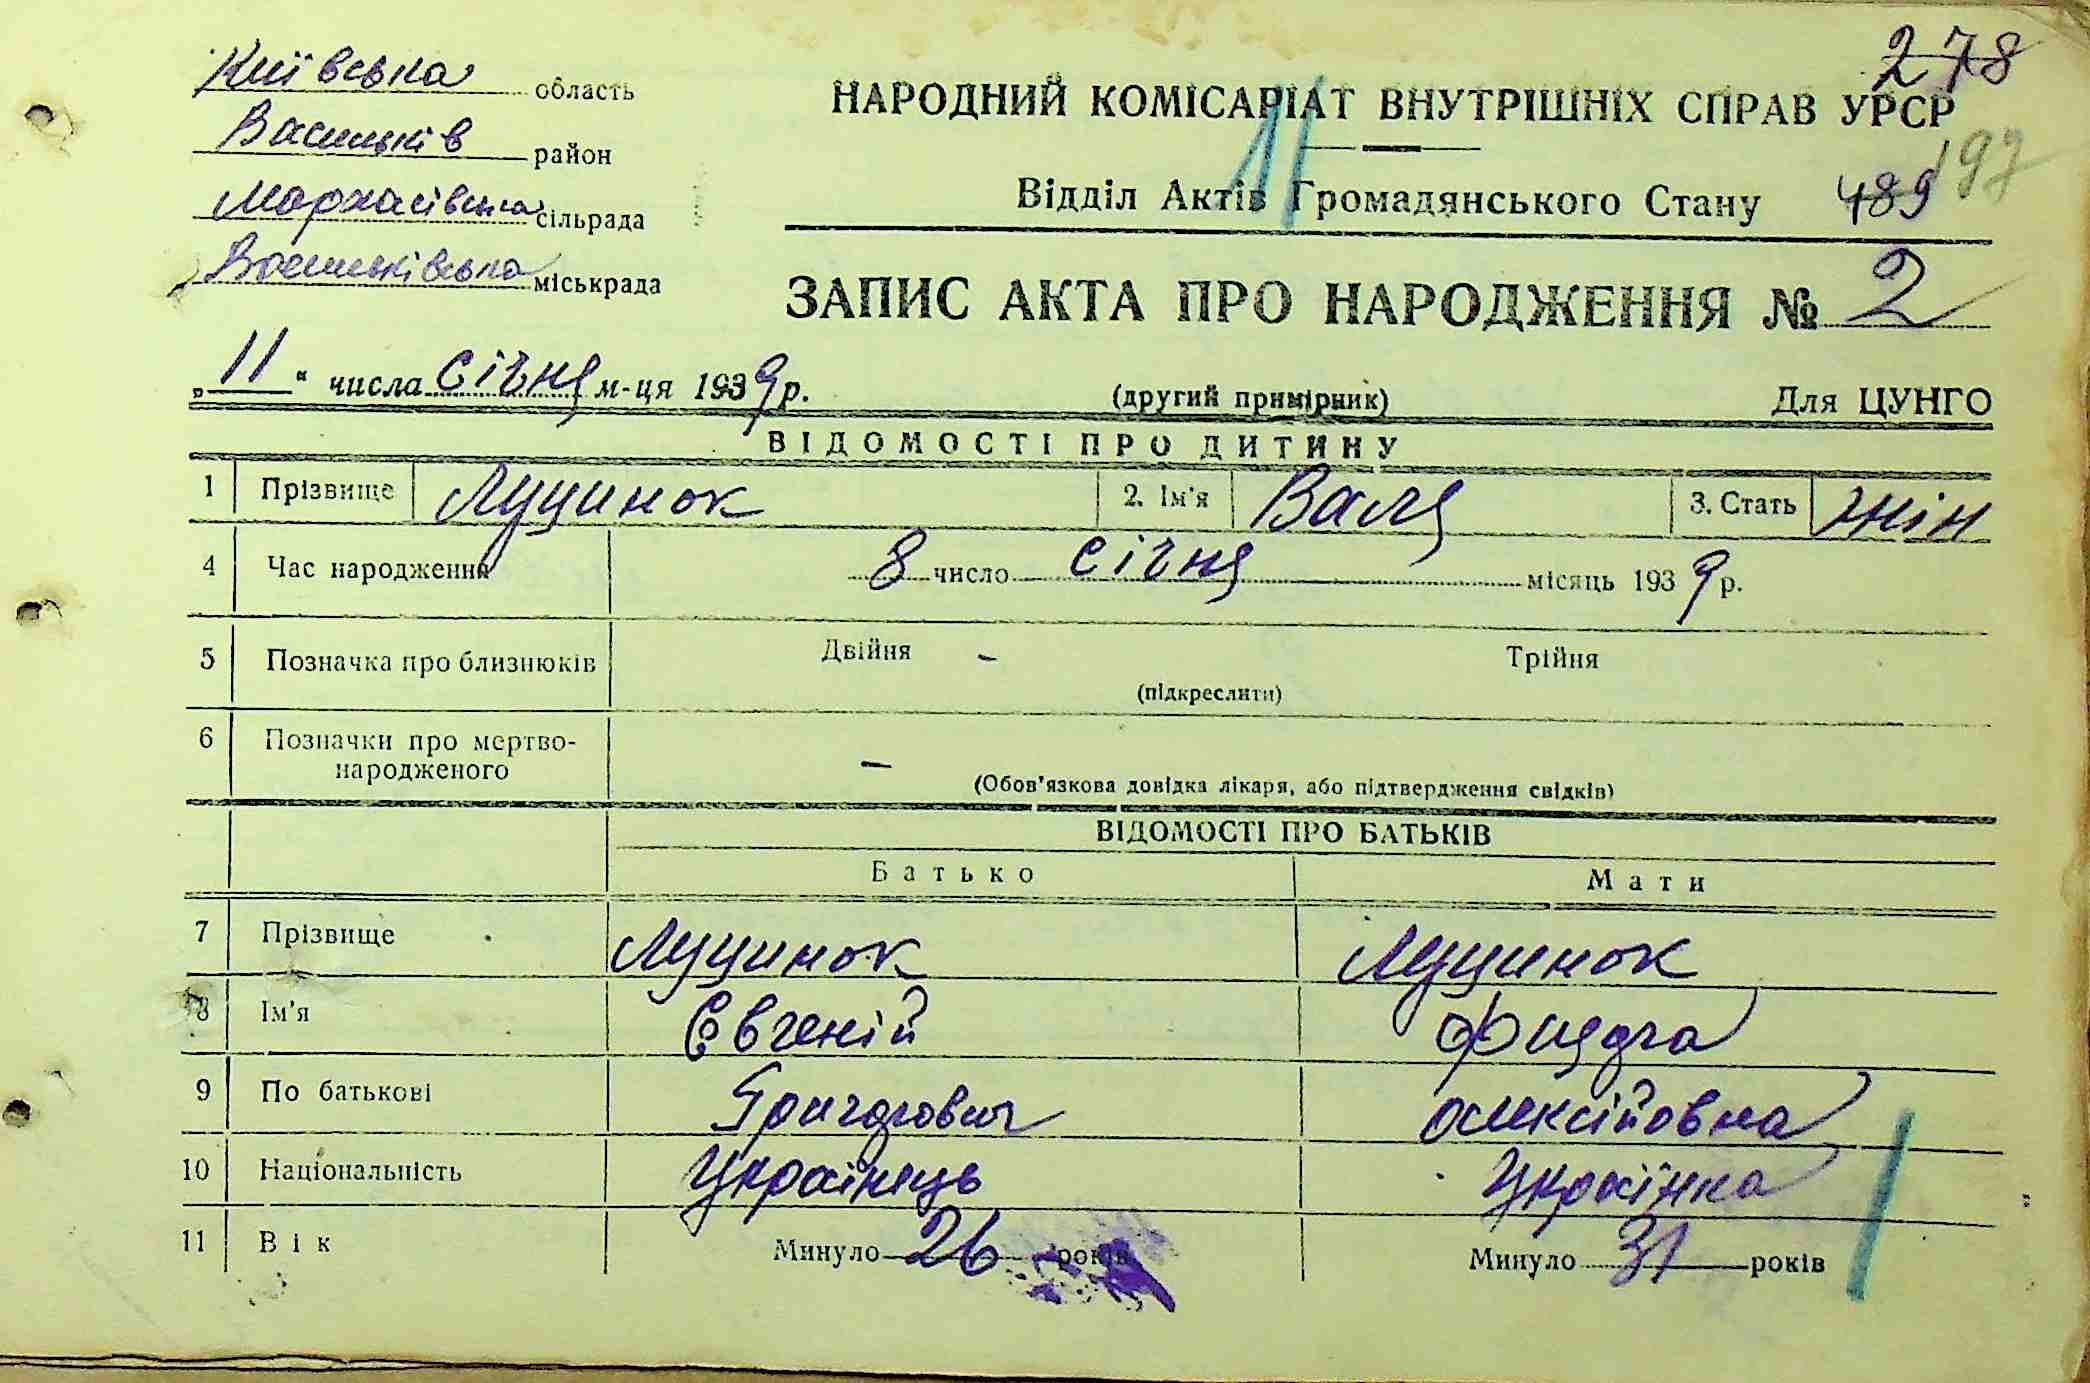 Київська область
Васильків район
Мархалівська сільрада
Васильківська міськрада
278
НАРОДНИЙ КОМІСАРІАТ ВНУТРІШНІХ СПРАВ УРСР
197
Відділ Актів Громадянського Стану 489
ЗАПИС АКТА ПРО НАРОДЖЕННЯ № 2
„11“ числа січня м-ця 1939 р. (другий примірник) Для ЦУНГО
ВІДОМОСТІ ПРО ДИТИНУ
1 Прізвище Луцинок 2. Ім'я Валя 3. Стать жін
4 Час народження 8 число січня місяць 1939 р.
5 Позначка про близнюків Двійня – Трійня
(підкреслити)
6 Позначки про мертво-
народженого –
(Обов'язкова довідка лікаря, або підтвердження свідків)
ВІДОМОСТІ ПРО БАТЬКІВ
Батько Мати
7 Прізвище Луцинок Луцинок
8 Ім'я Євгеній
9 По батькові Григорович Олексійовна
10 Національність Українець Українка
11 Вік Минуло 26 років Минуло 31 років